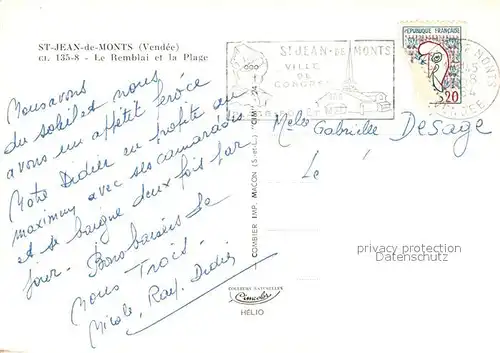 ST-JEAN-de-MONTS (Vendée)
CL. 135-8 - Le Remblai et la Plage
Nous avons
du soleil et nous
avons un appétit féroce
Notre Didier en profite au
maximum avec ses camarades
et se baigne deux fois par
jour - Bons baisers de
Nous Trois -
Nicole, Ray. Didier
COMBIER IMP. MACON (S.-et-L.) "CIM"
COULEURS NATURELLES
Cimcolor
HÉLIO
ST JEAN-DE-MONTS
VILLE
DE
CONGRES
REPUBLIQUE FRANÇAISE
0,20
Gabrielle Desage
Le
privacy protection
Datenschutz